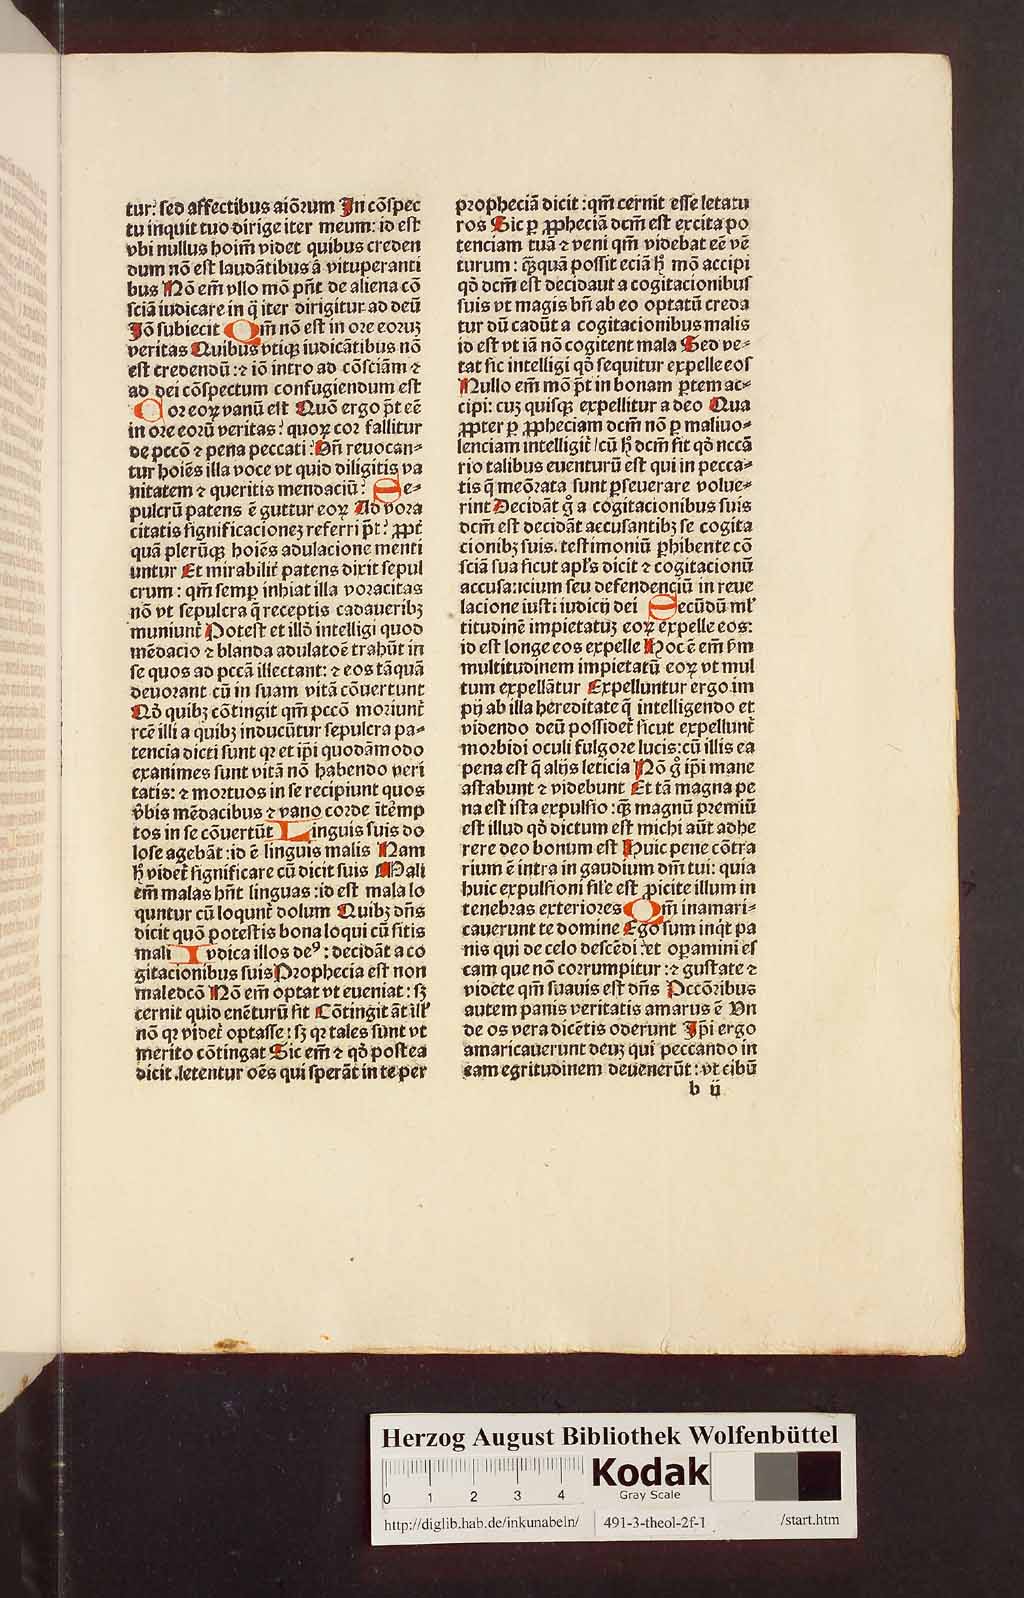 tur: sed affectibus aiõrum In cõspec
tu inquit tuo dirige iter meum: id est
vbi nullus hoim̃ videt quibus creden
dum nõ est laudãtibus ã vituperanti
bus Nõ em̃ vllo mõ pñt de aliena cõ
sciã iudicare in q̃ iter dirigitur ad deũ
Iõ subiecit Qm̃ nõ est in ore eoruꝫ
veritas Quibus vtiqꝫ iudicãtibus nõ
est credendũ: ⁊ iõ intro ad cõsciãm ⁊
ad dei cõspectum confugiendum est
Cor eoꝝ vanũ est Quõ ergo p̃t eẽ
in ore eorũ veritas: quoꝝ cor fallitur
de pccõ ⁊ pena peccati: Vñ reuocan⸗
tur hoiẽs illa voce vt quid diligitis va
nitatem ⁊ queritis mendaciũ: Se⸗
pulcrũ patens ẽ guttur eoꝝ Ad vora
citatis significacionez referri p̃t: ꝓpt̃
quã plerũqꝫ hoiẽs adulacione menti
untur Et mirabilit̃ patens dixit sepul
crum: qm̃ semꝑ inhiat illa voracitas
nõ vt sepulcra q̃ receptis cadaueribꝫ
muniunt Potest et illõ intelligi quod
mẽdacio ⁊ blanda adulatoẽ trahũt in
se quos ad pccã illectant: ⁊ eos tãquã
deuorant cũ in suam vitã cõuertunt
Qõ quibꝫ cõtingit qm̃ pccõ moriunt̃
rcẽ illi a quibꝫ inducũtur sepulcra pa⸗
tencia dicti sunt qꝛ et ip̃i quodãmodo
exanimes sunt vitã nõ habendo veri
tatis: ⁊ mortuos in se recipiunt quos
ṽbis mẽdacibus ⁊ vano corde ĩtẽmp
tos in se cõuertũt Linguis suis do
lose agebãt: id ẽ linguis malis Nam
h̃ videt̃ significare cũ dicit suis Mali
em̃ malas hñt linguas: id est mala lo
quntur cũ loqunt̃ dolum Quibꝫ dñs
dicit quõ potestis bona loqui cũ sitis
mali Iudica illos deꝰ: decidãt a co
gitacionibus suis Prophecia est non
maledcõ Nõ em̃ optat vt eueniat: sꝫ
cernit quid euẽturũ sit Cõtingit ãt ill̃
nõ qꝛ videt̃ optasse: sꝫ qꝛ tales sunt vt
merito cõtingat Sic em̃ ⁊ qõ postea
dicit .letentur oẽs qui sperãt in te per
propheciã dicit: qm̃ cernit esse letatu
ros Sic ꝑ ꝓpheciã dcm̃ est excita po
tenciam tuã ⁊ veni qm̃ videbat eẽ vẽ
turum: q̃ꝫquã possit eciã h̃ mõ accipi
qõ dcm̃ est decidãut a cogitacionibus
suis vt magis bñ ab eo optatũ creda
tur dũ cadũt a cogitacionibus malis
id est vt iã nõ cogitent mala Sed ve⸗
tat sic intelligi qõ sequitur expelle eos
Nullo em̃ mõ p̃t in bonam ꝑtem ac⸗
cipi: cuꝫ quisqꝫ expellitur a deo Qua
ꝓpter ꝑ ꝓpheciam dcm̃ nõ ꝑ maliuo⸗
lenciam intelligit̃ /cũ h̃ dcm̃ sit qõ nccã
rio talibus euenturũ est qui in pecca⸗
tis q̃ meõrata sunt ꝑseuerare volue⸗
rint Decidãt g̃ a cogitacionibus suis
dcm̃ est decidãt accusantibꝫ se cogita
cionibꝫ suis. testimoniũ ꝑhibente cõ
sciã sua sicut apl̃s dicit ⁊ cogitacionũ
accusancium seu defendenciũ in reue
lacione iusti iudicij dei Secũdũ ml̃
titudinẽ impietatuꝫ eoꝝ expelle eos:
id est longe eos expelle Hoc ẽ em̃ sm̃
multitudinem impietatũ eoꝝ vt mul
tum expellãtur Expelluntur ergo im
pij ab illa hereditate q̃ intelligendo et
videndo deũ possidet̃ sicut expellunt̃
morbidi oculi fulgore lucis: cũ illis ea
pena est q̃ alijs leticia Nõ g̃ ip̃i mane
astabunt ⁊ videbunt Et tã magna pe
na est ista expulsio: q̃ꝫ magnũ premiũ
est illud qõ dictum est michi aũt adhe
rere deo bonum est Huic pene cõtra
rium ẽ intra in gaudium dñi tui: quia
huic expulsioni sil̃e est ꝓicite illum in
tenebras exteriores Qm̃ inamari⸗
cauerunt te domine Ego sum inq̃t pa
nis qui de celo descẽdi :et opamini es
cam que nõ corrumpitur: ⁊ gustate ⁊
videte qm̃ suauis est dñs Pccõribus
autem panis veritatis amarus ẽ Vn
de os vera dicẽtis oderunt Ip̃i ergo
amaricauerunt deuꝫ qui peccando in
eam egritudinem deuenerũt: vt cibũ
b ij
Herzog August Bibliothek Wolfenbüttel
0 1 2 3 4
Kodak
Gray Scale
http://diglib.hab.de/inkunabeln/ 491-3-theol-2f-1 /start.htm